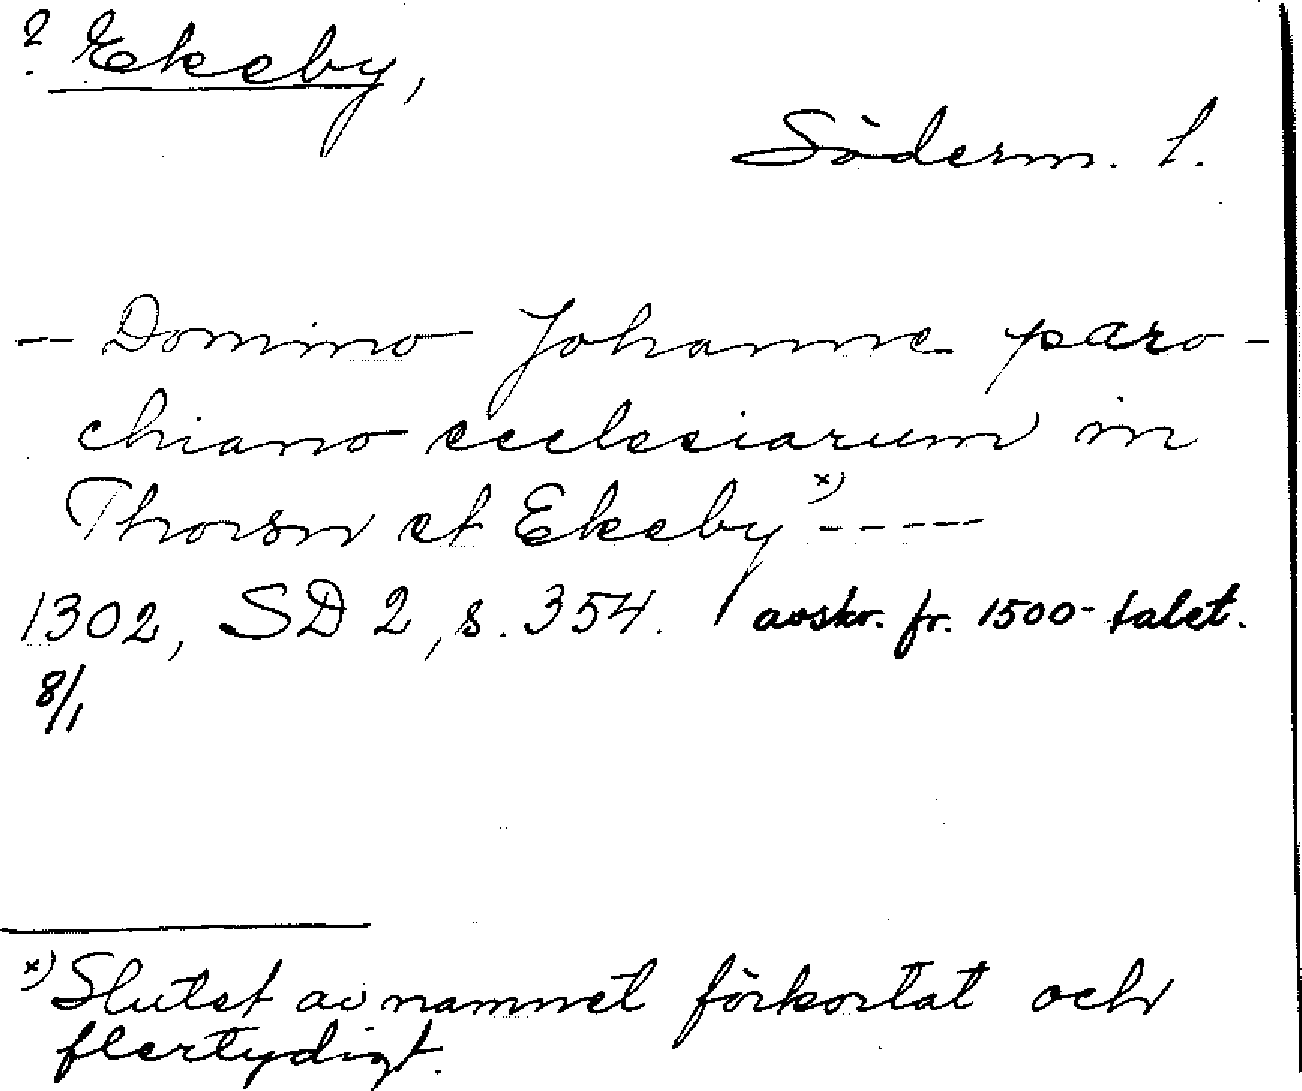 ? Ekeby,
Söderm. l.
– Domino Johanne paro-
chiano ecclesiarum in
Thorsn et Ekeby x) - - - -
1302, SD 2, s. 354. avskr. fr. 1500-talet.
8/1
x) Slutet av namnet förkortat och
flertydigt.